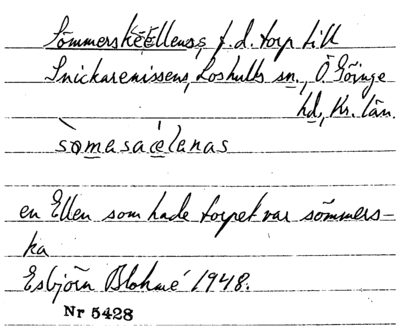 Sömmerskeellens, f.d. torp till
Snickarenissens, Loshults sn., Ö. Göinge
hd, Kr. län.
sømasaélanas
en Ellen som hade torpet var sömmers-
ka
Esbjörn Blohmé 1948.
Nr 5428